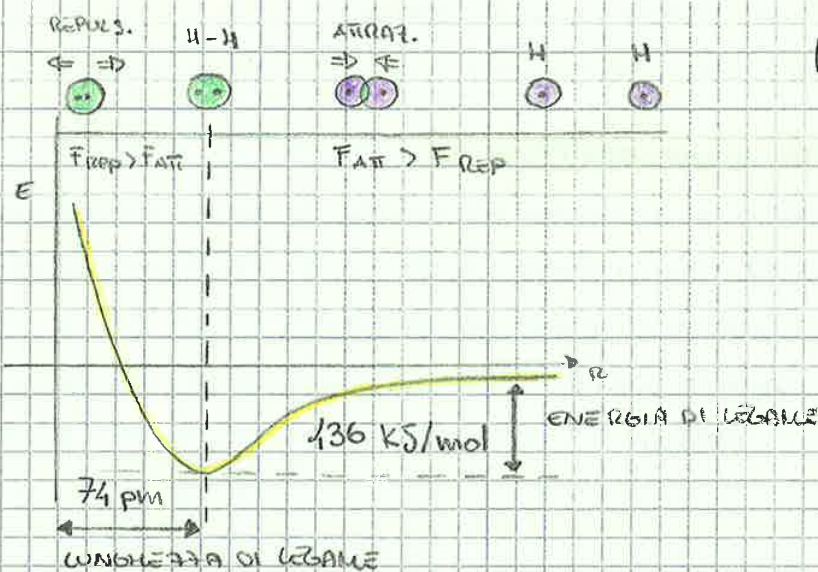 REPULS.
H-H
ATTRAZ.
H
H
F REP > F ATT
F ATT > F REP
E
R
436 KJ/mol
ENERGIA DI LEGAME
74 pm
LUNGHEZZA DI LEGAME